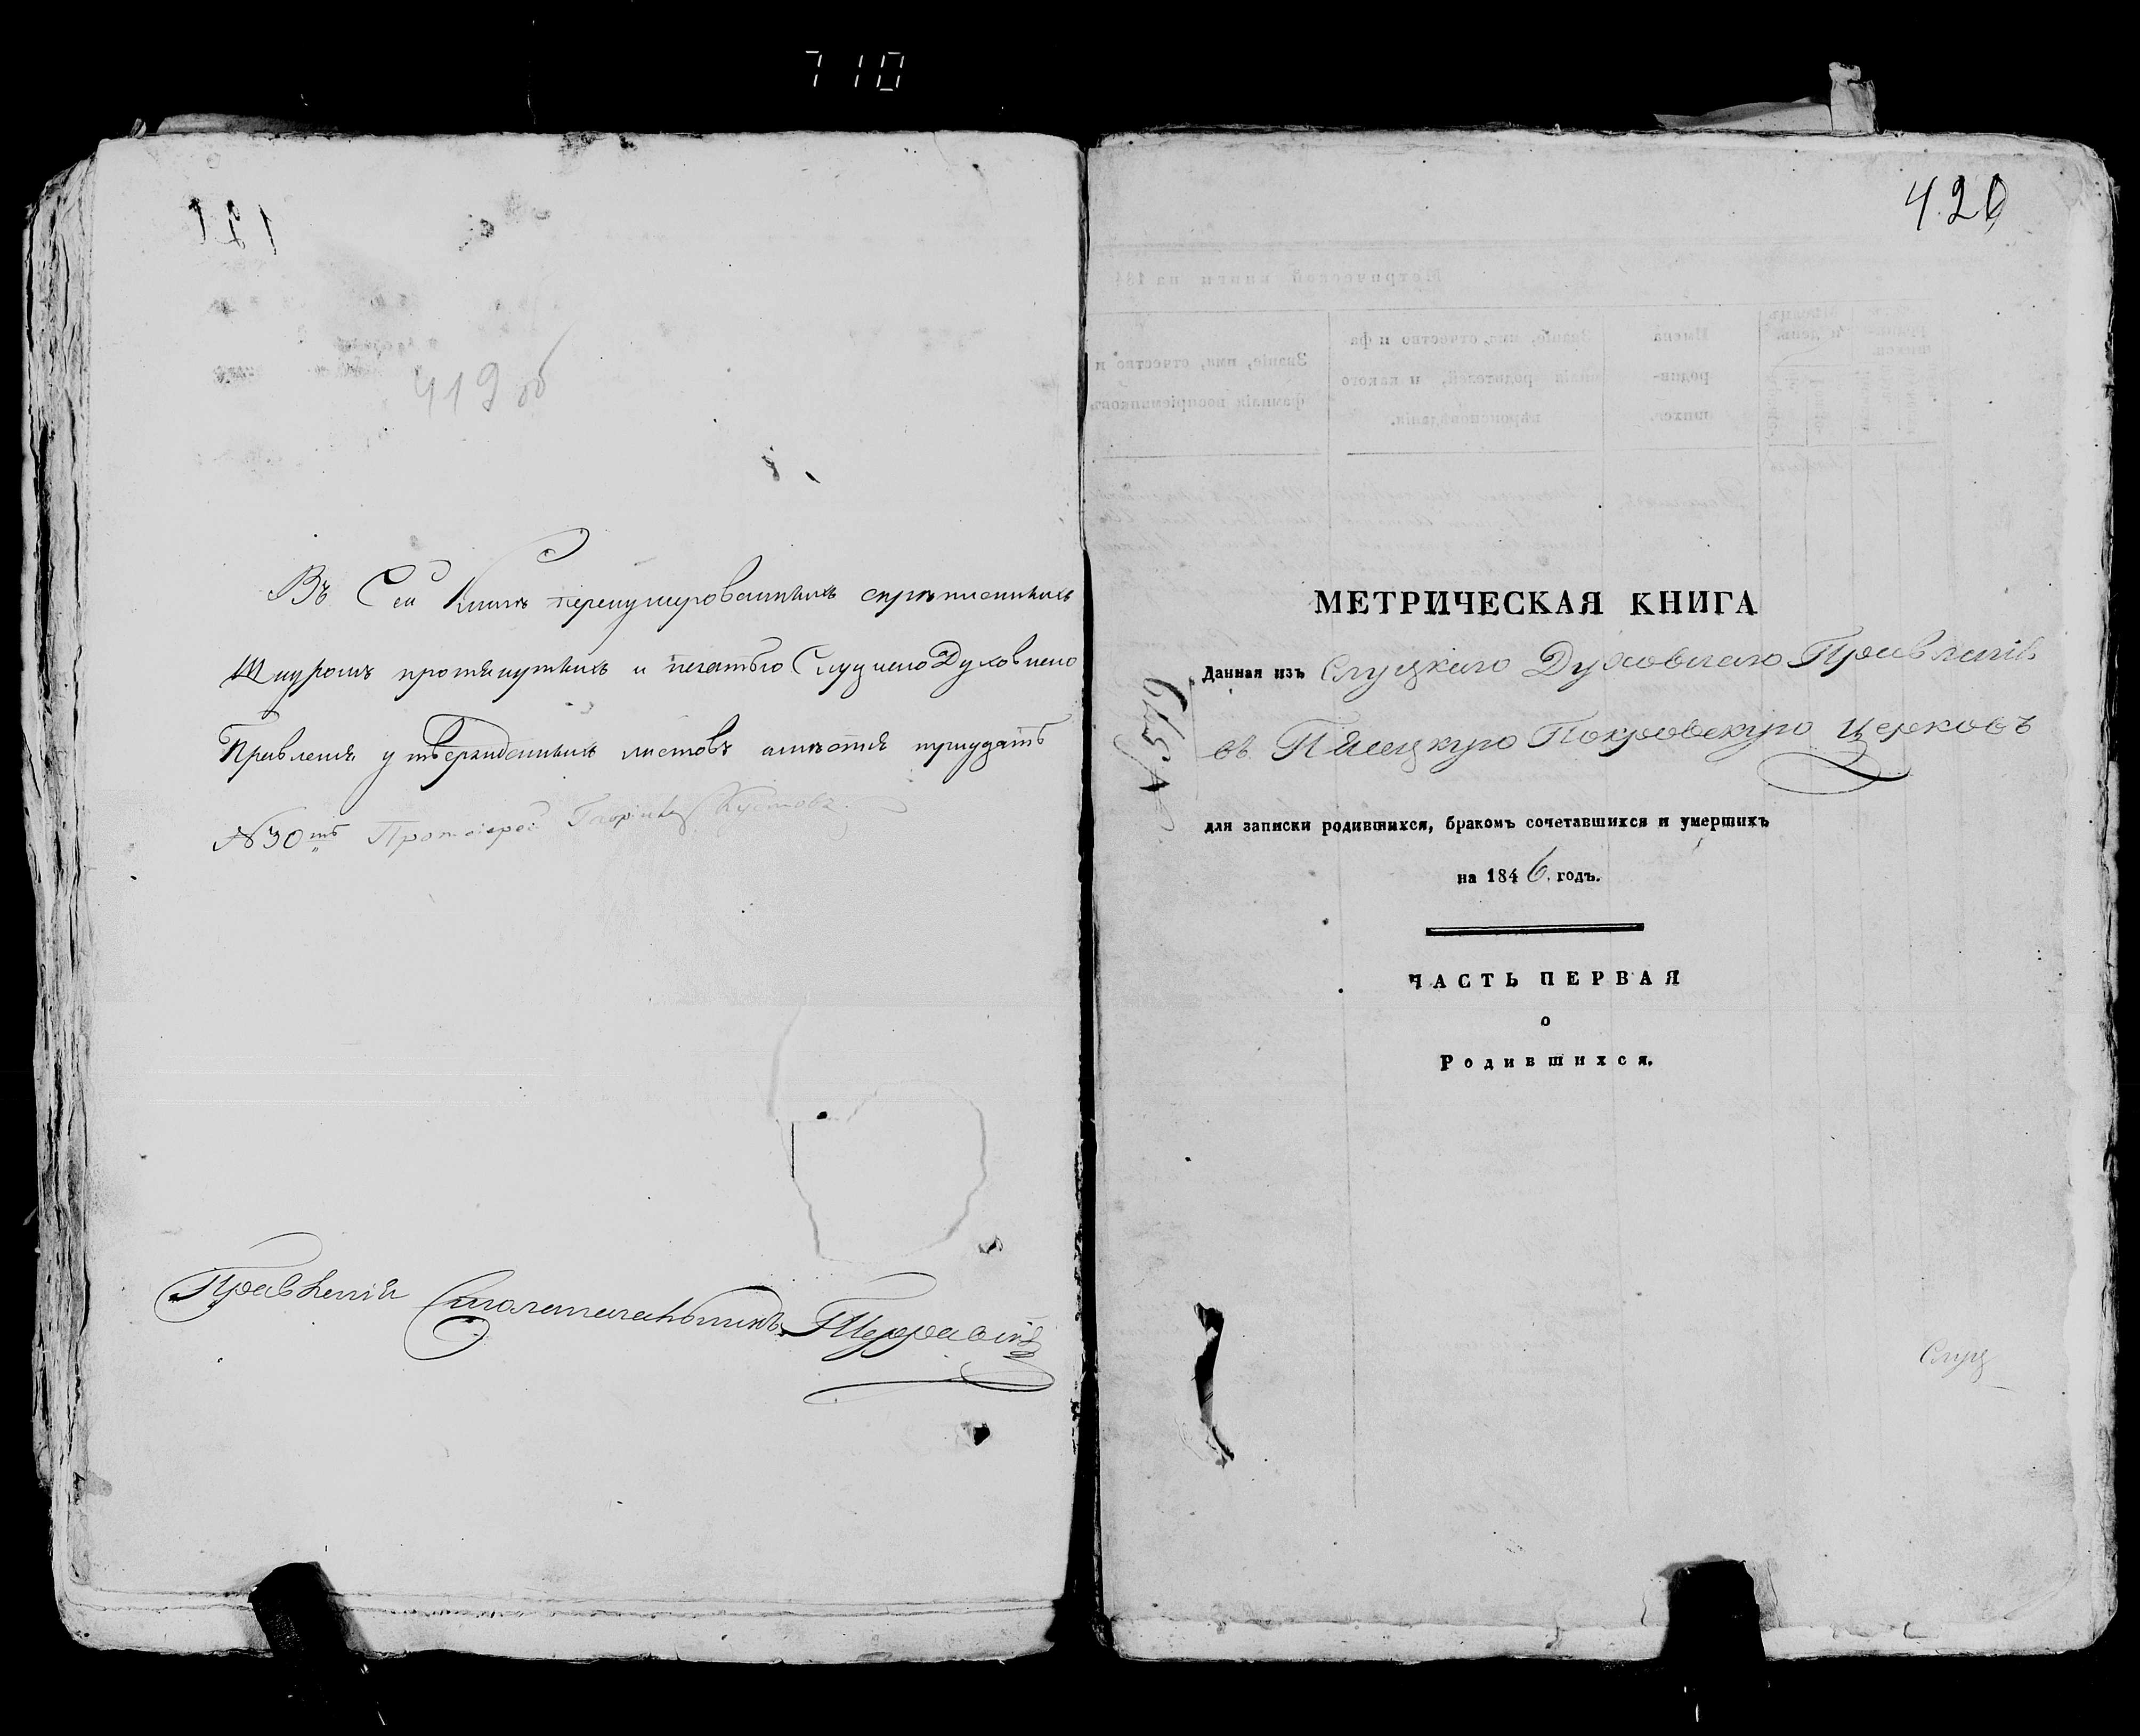 710
419 об
Въ Сей Книге перенумерованныхъ скрепленныхъ
Шнуромъ протянутыхъ и печатью Слуцкого Духовного
Правления утвержденныхъ листовъ имеется тридцать
№30ть Протоиерей
Правленія Столоначальникъ
420
МЕТРИЧЕСКАЯ КНИГА
Данная изъ Слуцкаго Духовнаго Правленія
въ Покровскую Церковь
для записки родившихся, бракомъ сочетавшихся и умершихъ
на 1846. годъ.
ЧАСТЬ ПЕРВАЯ
о
Родившихся.
Слуц